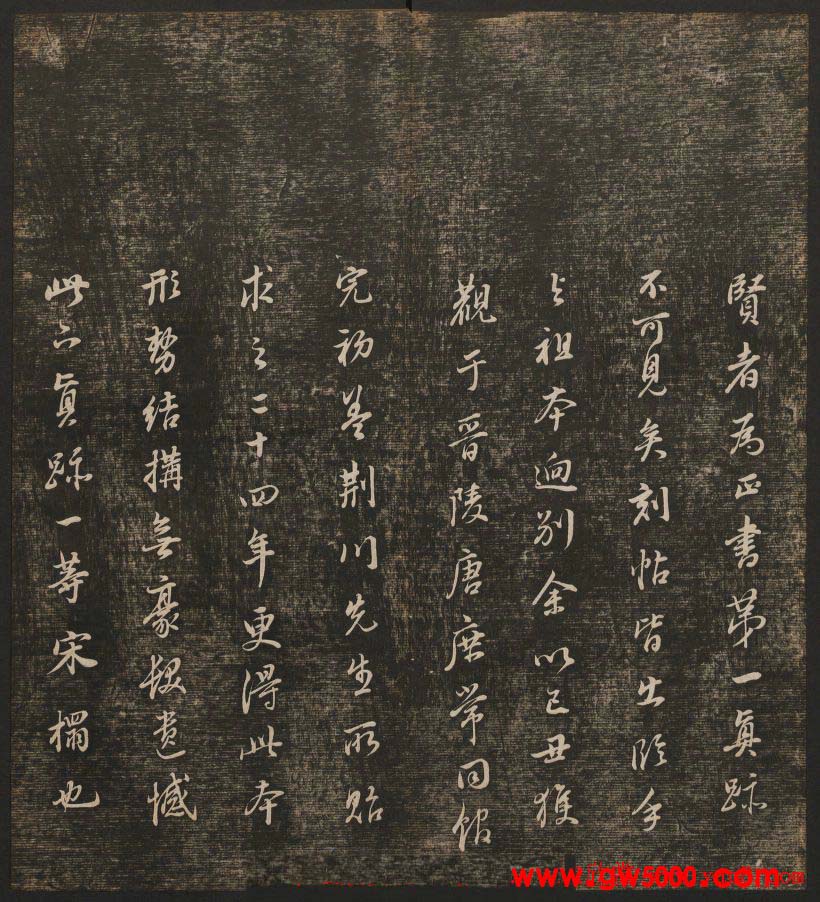 賢者為正書第一真跡
不可見矣刻帖皆出臨手
與祖本迥別余以己丑獲
觀于晉陵唐庶常同館
完初蓋荆川先生所貽
求之二十四年更得此本
形勢結搆無豪髮遺憾
此下真跡一等宋榻也
www.lgw5000.com